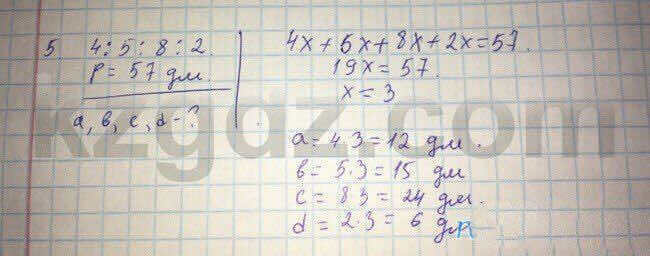 5. 4:5:8:2.
P = 57 дм.
a, b, c, d - ?
4x + 5x + 8x + 2x = 57.
19x = 57.
x = 3
a = 4·3 = 12 дм.
b = 5·3 = 15 дм
c = 8·3 = 24 дм.
d = 2·3 = 6 дм
kzgdz.com